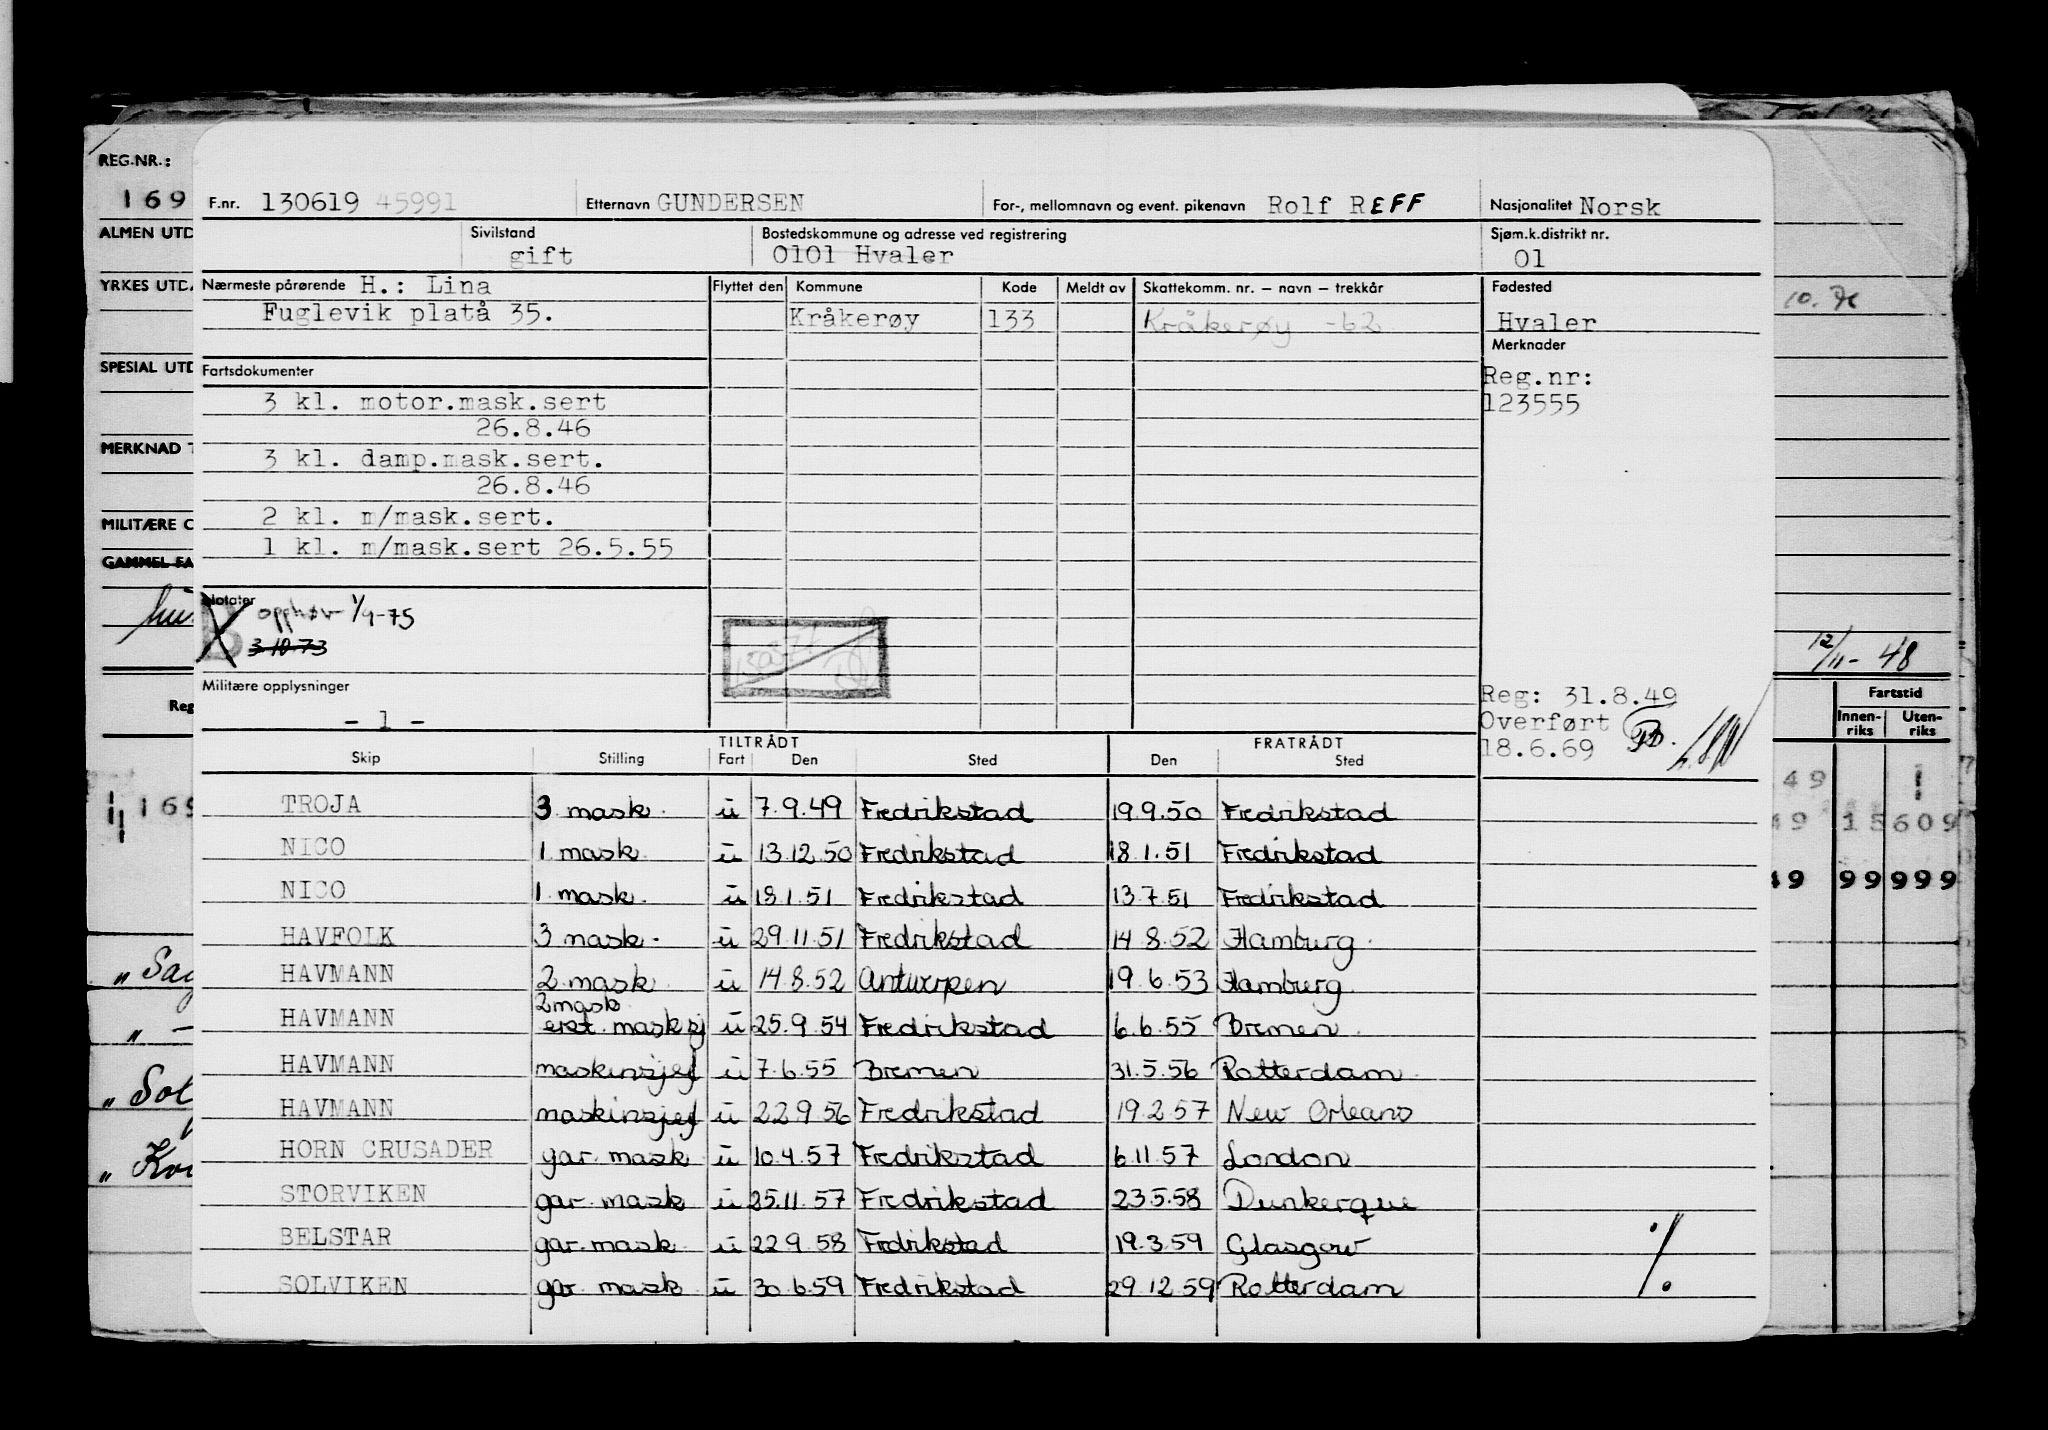 REG.NR.:
169
ALMEN UTD
YRKES UTDA
SPESIAL UTD
MERKNAD T
MILITÆRE O
GAMMEL FA
Reg
169
„ Sag
„ —
„ Sol
„ Kor
F.nr. 130619 45991 Etternavn GUNDERSEN For-, mellomnavn og event. pikenavn Rolf REFF Nasjonalitet Norsk
Sivilstand Bostedskommune og adresse ved registrering Sjøm.k.distrikt nr.
gift 0101 Hvaler 01
Nærmeste pårørende H.: Lina Flyttet den Kommune Kode Meldt av Skattekomm. nr. – navn – trekkår Fødested
Fuglevik platå 35. Kråkerøy 133 Kråkerøy -62 Hvaler
Merknader
Fartsdokumenter Reg.nr:
3 kl. motor.mask.sert 123555
26.8.46
3 kl. damp.mask.sert.
26.8.46
2 kl. m/mask.sert.
1 kl. m/mask.sert 26.5.55
Notater opphør 1/9-75
B 3-10.73
Militære opplysninger Reg: 31.8.49
- 1 - Overført
18.6.69
TILTRÅDT FRATRÅDT
Skip Stilling Fart Den Sted Den Sted
TROJA 3 mask. u 7.9.49 Fredrikstad 19.9.50 Fredrikstad
NICO 1 mask. u 13.12.50 Fredrikstad 18.1.51 Fredrikstad
NICO 1. mask. u 18.1.51 Fredrikstad 13.7.51 Fredrikstad
HAVFOLK 3 mask. u 29.11.51 Fredrikstad 14.8.52 Hamburg.
HAVMANN 2. mask. u 14.8.52 Antwerpen 19.6.53 Hamburg.
2 mask
HAVMANN erst. masksj u 25.9.54 Fredrikstad 6.6.55 Bremen.
HAVMANN maskinsjef u 7.6.55 Bremen 31.5.56 Rotterdam.
HAVMANN maskinsjef u 22.9.56 Fredrikstad 19.2.57 New Orleans
HORN CRUSADER gar. mask. u 10.4.57 Fredrikstad 6.11.57 London
STORVIKEN gar. mask u 25.11.57 Fredrikstad 23.5.58 Dunkerque
BELSTAR gar. mask. u 22.9.58 Fredrikstad 19.3.59 Glasgow
SOLVIKEN gar. mask u 30.6.59 Fredrikstad 29.12.59 Rotterdam
./.
12/11-48
Fartstid
Innen-riks Uten-riks
49
49 15609
49 99999